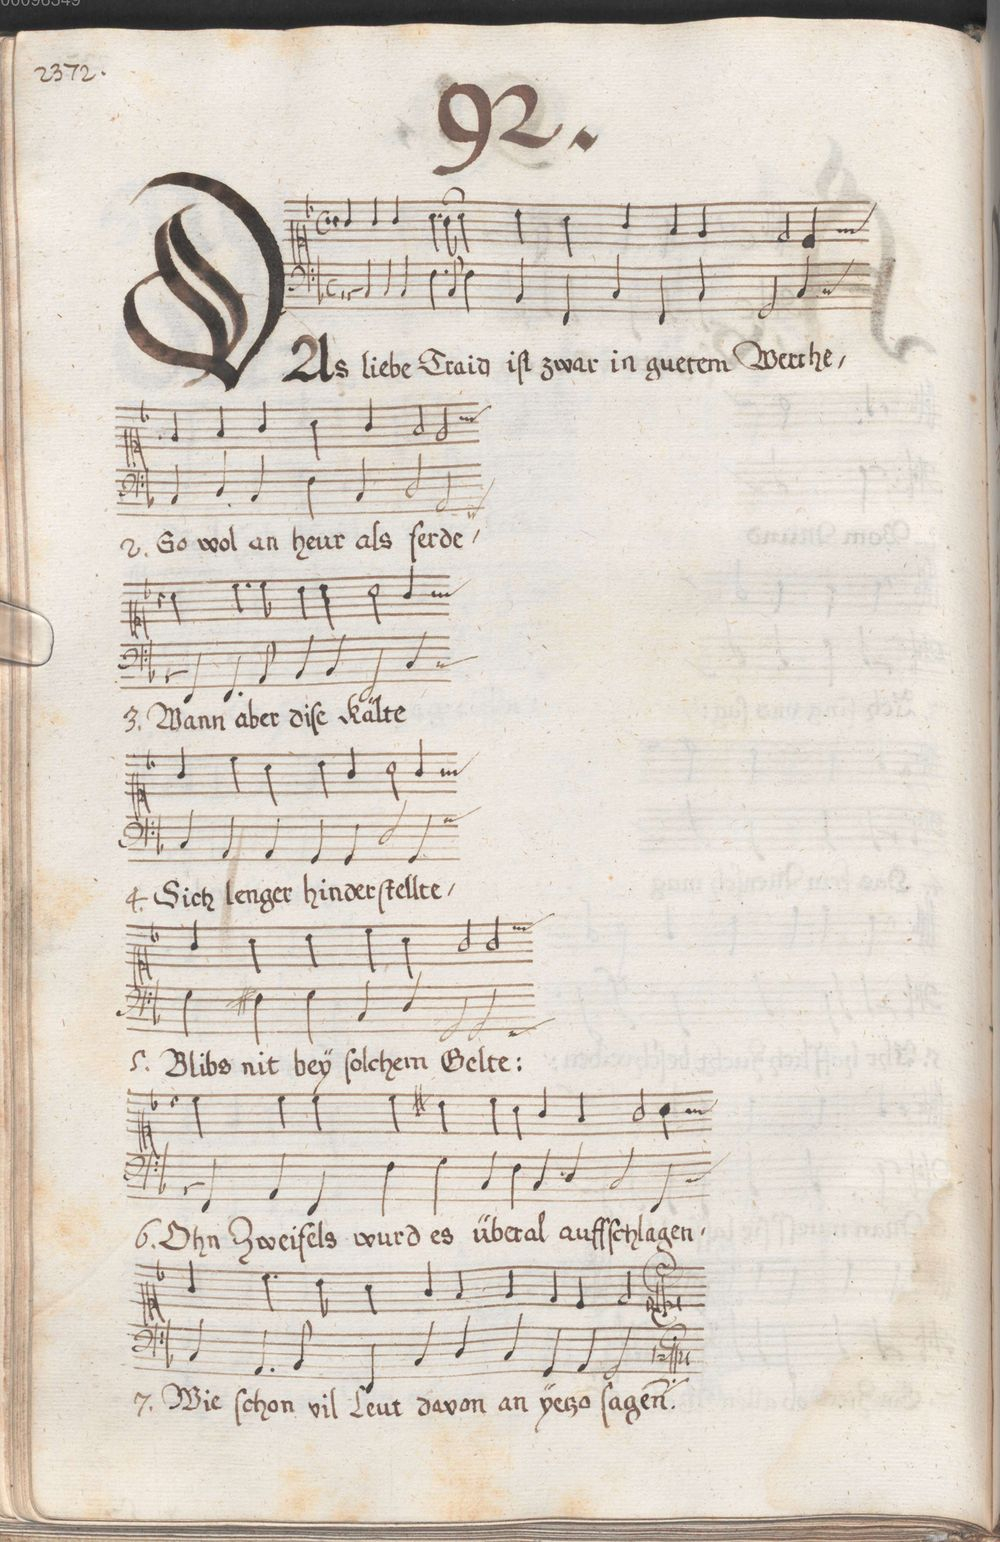 2372.
92.
DAs liebe Traid ist zwar in guetem Werthe,
2. So wol an heur als ferde,
3. Wann aber dise Kälte
4. Sich lenger hinderstellte,
5. Blibs nit bey solchem Gelte:
6. Ohn Zweifels wurd es überal auffschlagen,
7. Wie schon vil Leut davon an yetzo sagen.